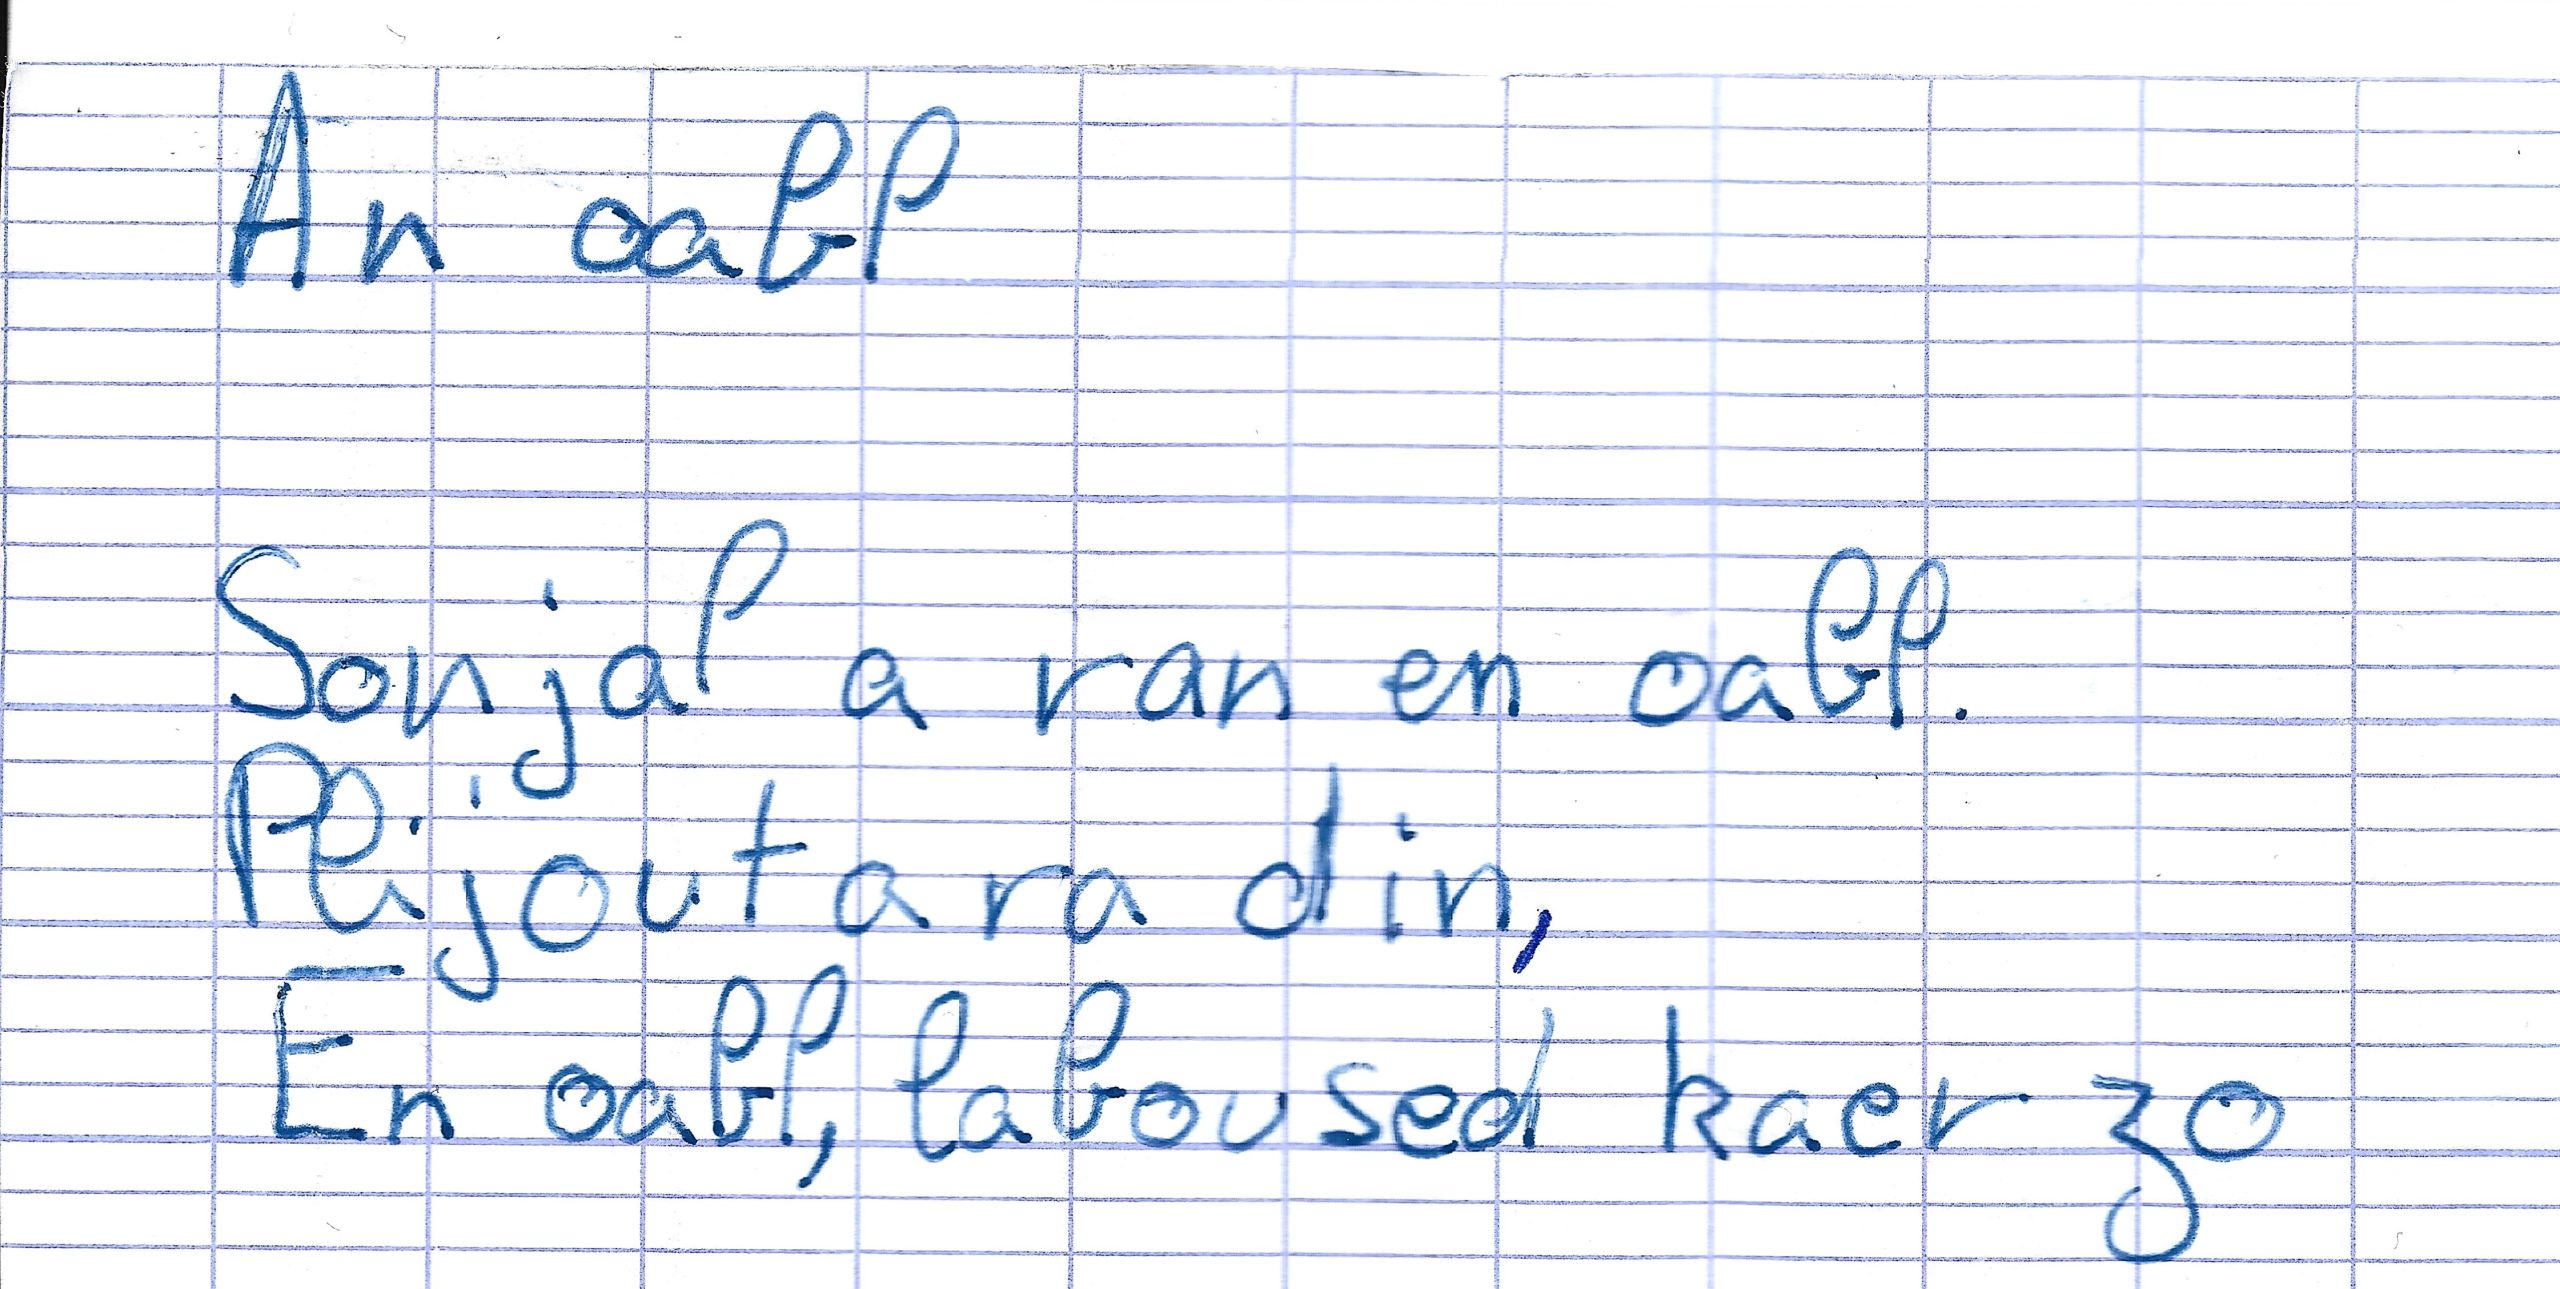 An oabl
Sonjal a ran en oabl.
Plijout a ra din,
En oabl, laboused kaer zo